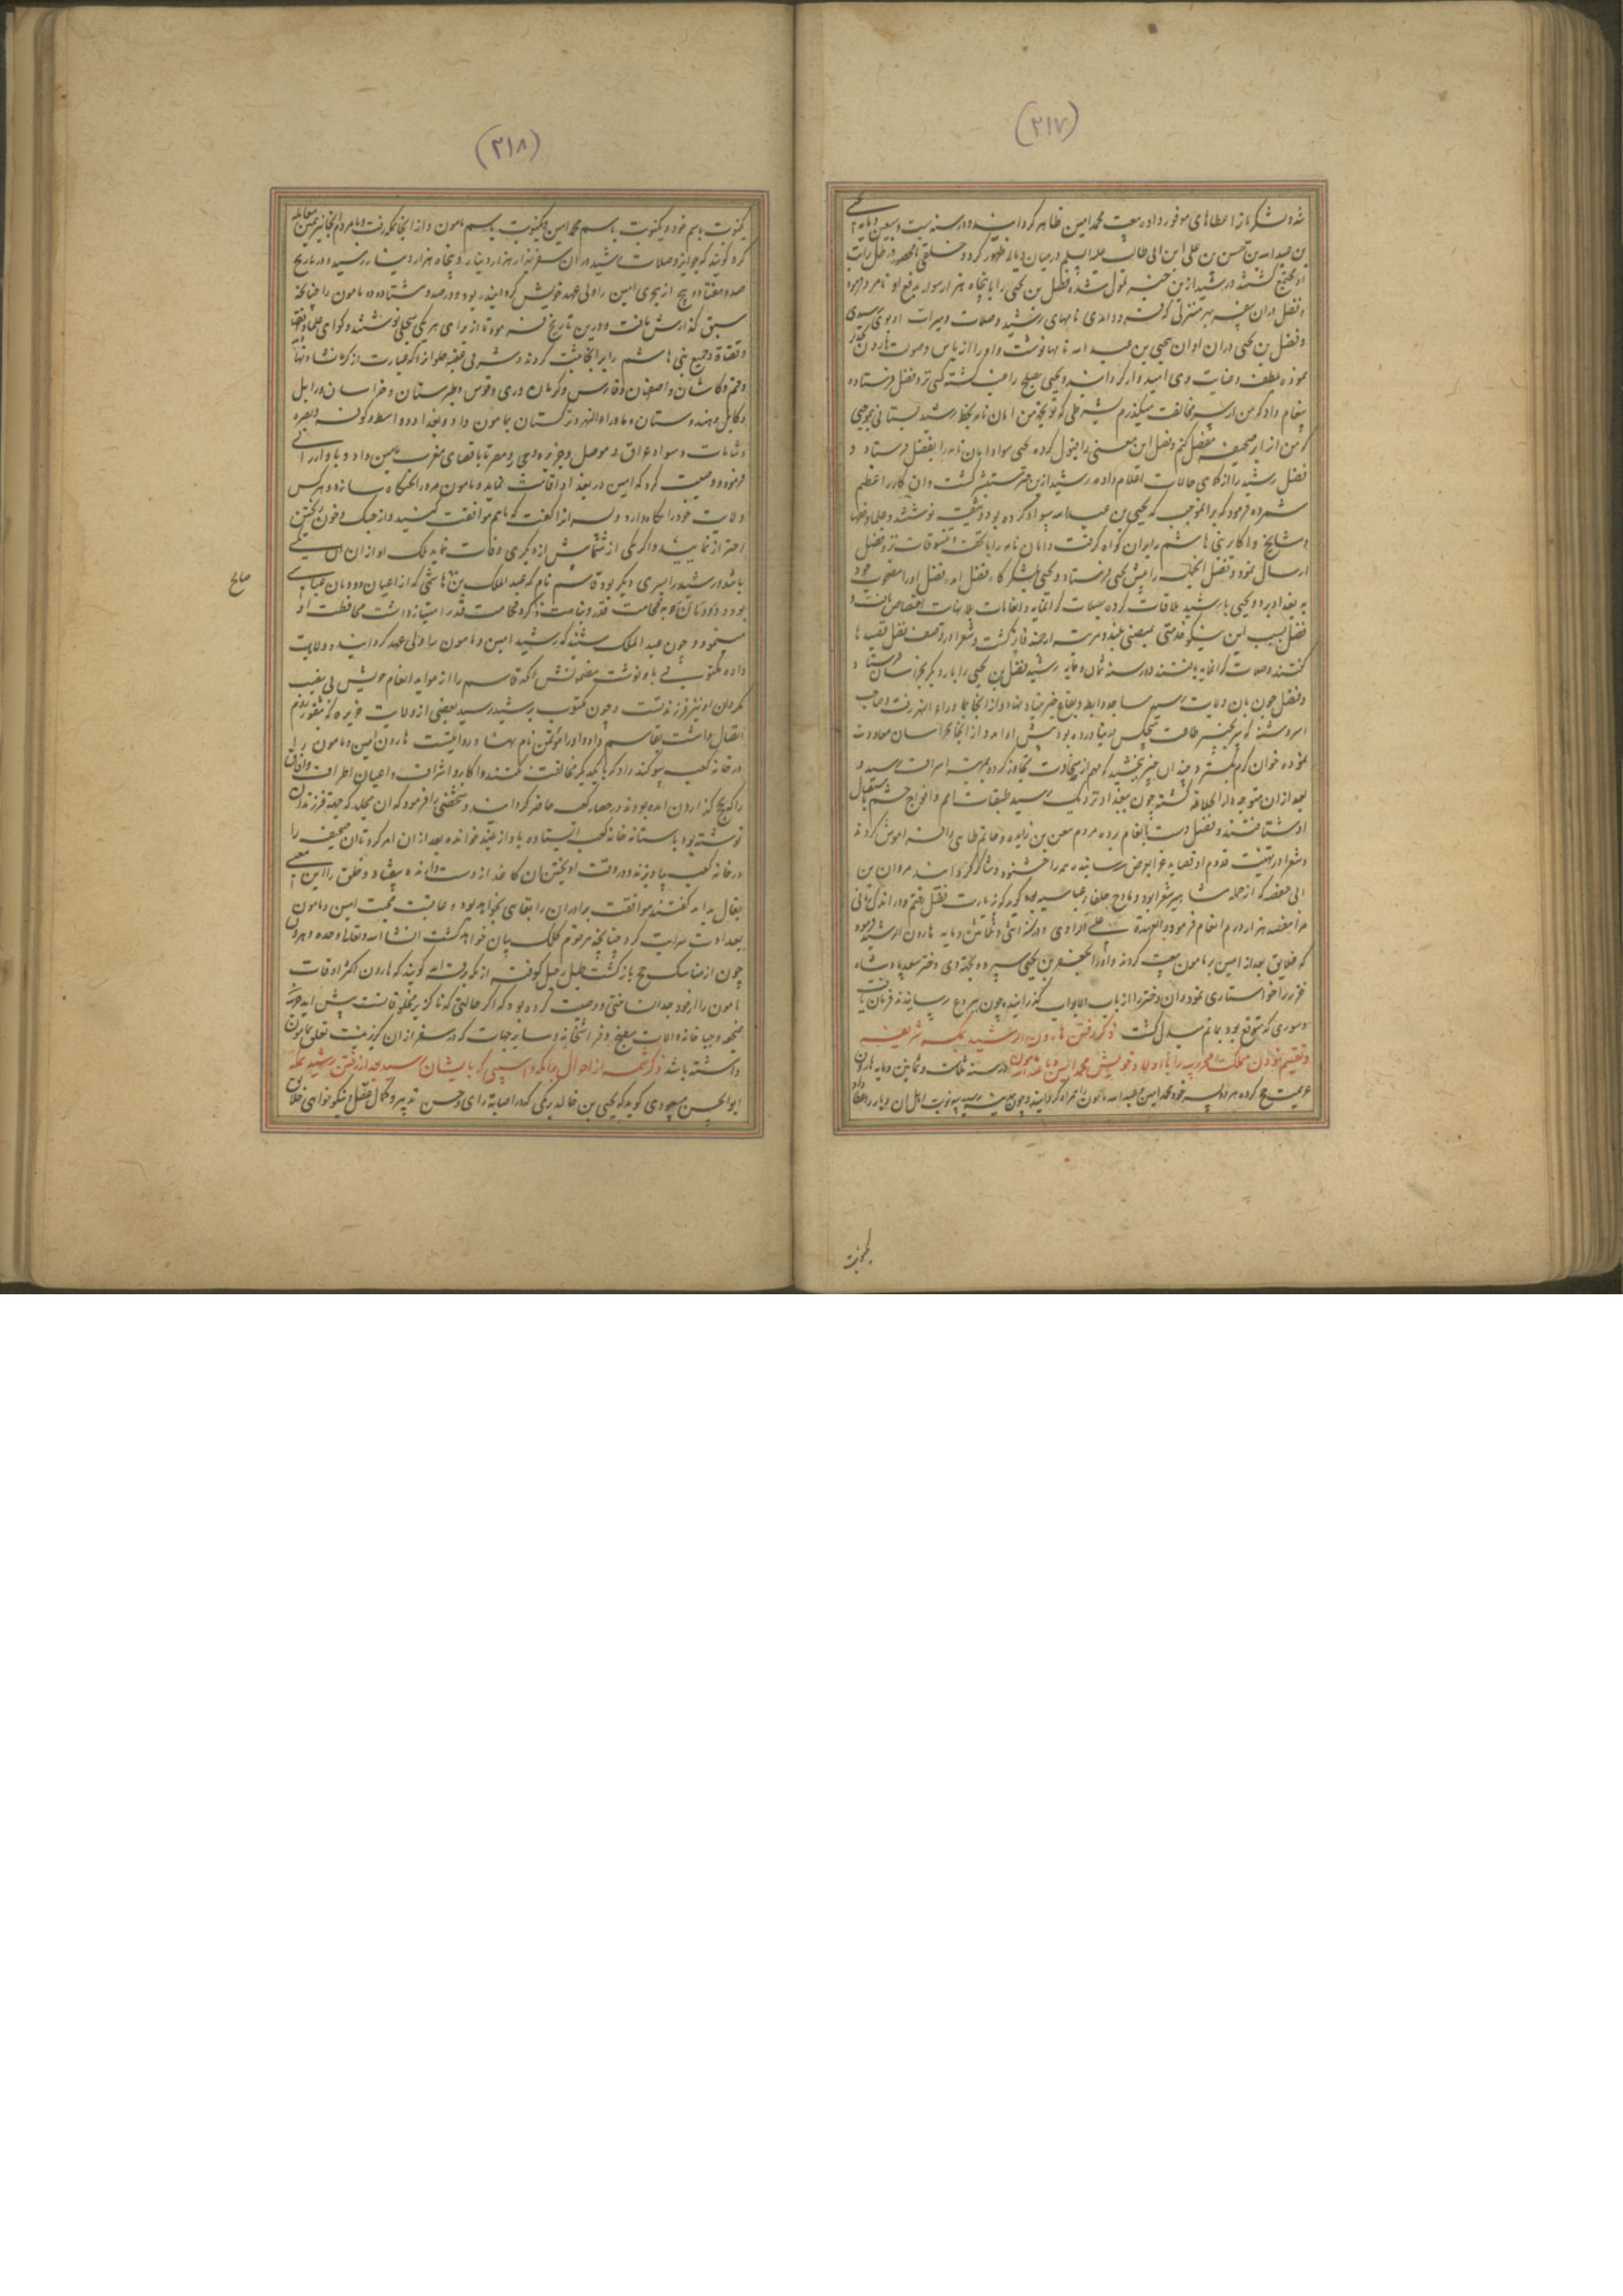 (۲۱۷)
شد و لشکر باز اعطاهای موفور داده بیعت محمد امین ظاهر گردانید و در سنه ست و سبعین و مایه یحیی
بن عبدالله بن حسن بن علی ابن ابی طالب علیه السلم در میان دیالمه ظهور کرد و خلقی نامحصور در ظل رایت
او مجتمع گشتند و رشید ازین خبر ملول شده فضل بن یحیی را با پنجاه هزار سوار بدفع او نامزد فرمود
و فضل در آن سفر بهر منزلی که فرود آمدی نامهای رشید و صلات و مبرات او بوی رسیدی
و فضل بن یحیی در آن اوان یحیی بن عبدالله نامها نوشت و او را از باس و صولت هارون
نموده بلطف و عنایت وی امیدوار گردانید و یحیی بصلح راضی گشته کس نزد فضل فرستاده
پیغام داد که من از سر مخالفت میگذرم بشرطی که تو بجهة من امان نامه بخط رشید بستانی بموجبی
که من از ان صحیفه مفصل کنم و فضل این معنی را قبول کرده یحیی سواد امان نامه را بفضل فرستاد و
فضل رشید را از کماهی حالات اعلام داده رشید ازین خبر مستبشر گشت و آن کار را عظیم
شمرده فرمود که برانموجب که یحیی بن عبدالله سواد کرده بود وثیقت نوشتند و علما و فقها
و مشایخ و اکابر بنی هاشم را بران گواه گرفت و امان نامه را با تحف و تنسوقات نزد فضل
ارسال نمود و فضل آنجمله را پیش یحیی فرستاد و یحیی بلشکرگاه فضل آمد و فضل او را مصحوب خود
به بغداد برد و یحیی با رشید ملاقات کرده بصلات گرانمایه و انعامات بلا نهایت اختصاص یافت و
فضل بسبب این نیکو خدمتی بمنصبی بلند و مرتبه ارجمند فایز گشت و شعرا در وصف فضل قصیدها
گفتند و صلات گرانمایه یافتند و در سنه ثمان و مایه رشید فضل بن یحیی را بار دیگر بخراسان فرستاد و
و فضل چون بان ولایت رسید مساجد و رابط و بقاع خیر بنیاد نهاد و از انجا بما وراء النهر رفت و صاحب
اسروشنه که پیش اطاعت هیچکس در نیاورده بود پیش او آمد و از آنجا بخراسان معاودت
نموده خوان کرم بگسترد و چندان چیز ببخشید که مهم از سخاوت تجاوز کرده بمرتبه اسراف رسید و
بعد از آن متوجه دار الخلافه گشته چون ببغداد نزدیک رسید طبقات امم و افواج حشم باستقبال
او شتافتند و فضل دست بانعام برده مردم معن بن زایده و حاتم طایی را فراموش کردند
و شعرا در تهنیت قدوم او قصاید غرا بعرض رسانیده همه را خشنود و شاکر گردانید مروان بن
ابی حفصه که از جمله مشاهیر شعرا بود و مادح خلفاء عباسیه بود گوید که بزیارت فضل رفتم و در اندک زمانی
مرا هفصد هزار درم انعام فرمود و در سنه اثنی و ثمانین و مایه هارون الرشید فرمود
که خلایق بعد از امین بر مامون بیعت کردند و او را بجعفر بن یحیی سپرد و بجهة وی دختر پادشاه
خزر را خواستاری نمود و آن دختر را از باب الابواب گذرانیده چون ببردع رسانیدند فرمان یافت
و سوری که متوقع بود بماتم مبدل گشت ذکر رفتن هارون الرشید بمکه شریفه
و تقسیم نمودن مملکت محروسه را با اولاد خویش محمد امین با عبدالله مامون در سنه ثلث و ثمانین و مایه هارون
عزیمت حج کرده هر دو پسر خود محمد امین و عبدالله مامون را همراه گردانید و چون بمدینه رسید سه نوبت اهل آن دیار را عطا داد
یکنوبت
(۲۱۸)
یکنوبت باسم خود و یکنوبت باسم محمد امین و یکنوبت باسم مامون و از انجا بمکه رفت و با مردم آنجا نیز همین معامله
کرد گویند که جوایز و صلات رشید در آن سفر بهزار هزار دینار و پنجاه هزار دینار رسید و در تاریخ
صد و هفتاد و پنج از هجری امین را ولی عهد خویش گردانیده بود و در صد و هشتاد و دو مامون را چنانچه
سبق گذارش یافت و درین تاریخ فرمود تا از برای هر یکی سجلی نوشتند و گواهی علما و فقها
و قضاة و جمیع بنی هاشم را بر آنجا ثبت کردند و شرقی عقبه حلوان را که عبارت از کرمانشاه و نهاوند
و قم و کاشان و اصفهان و فارس و کرمان و ری و قومس و طبرستان و خراسان و زابل
و کابل و هندوستان و ماوراء النهر و ترکستان بمامون داد و بغداد و واسط و کوفه و بصره
و شامات و سواد عراق و موصل و جزیره و حجاز و مصر تا باقصای مغرب بامین داد و با او ارزانی
فرمود و وصیت کرد که امین در بغداد اقامت نماید و مامون مرو را تختگاه سازد و هر کس
ولایت خود را نگاه دارد و پسرانرا گفت که با هم موافقت کنید و از جنگ و خون ریختن
احتراز نمایید و اگر یکی از شما پیش از دیگری وفات نماید ملک او از آن
باشد و رشید را پسری دیگر بود قاسم نام که عبدالملک بن هاشمی که از اعیان دودمان عباسی
بود و دودمان عباسی به فخامت قدر و نباهت ذکر و فخامت قدر امتیاز داشت محافظت او
مینمود و چون عبدالملک شنید که رشید امین و مامون را ولی عهد گردانیده و ولایت
داده مکتوبی باو نوشت مضمونش آنکه قاسم را از مواید انعام خویش بی نصیب
مگردان او نیز فرزند تست و چون مکتوب برشید رسید بعضی از ولایت جزیره که بثغور روم
اتصال داشت بقاسم داد و او را موتمن نام نهاد و روایتست هارون امین و مامون را
در خانه کعبه سوگند داد که با یکدیگر مخالفت نکنند و اکابر و اشراف و اعیان اطراف و آفاق
را که بحج گذاردن آمده بودند در حصار کعبه حاضر گردانید و شخصی را فرمود که آن سجل که بجهة فرزندان
نوشته بود باستانه خانه کعبه ایستاده باواز بلند خوانده بعد از آن امر کرد تا آن صحیفه را
در خانه کعبه بیاویزند و در وقت آویختن آن کاغذ از دست دارنده بیفتاد و خلق را این معنی
بفال بد آمد گفتند موافقت برادران را بقایی نخواهد بود و عاقبت محبت امین و مامون
بعداوت سرایت کرد چنانچه مرقوم کلک بیان خواهد گشت انشاء الله تعالی وحده و هارون
چون از مناسک حج باز گشت طبل رحیل کوفته از مکه برقه آمد گویند که هارون اکثر اوقات
مامون را از خود جدا نساختی و وصیت کرده بود که اگر حالتی که ناگزیر مخلوقاتست پیش آید خزینه
ضمیمه و جبا خانه و آلات مطبخ و فراشخانه و سایر جهات که در سفر از آن گزیر نیست تعلق بمامون
داشته باشد ذکر شمه از احوال برامکه و آسیبی که بایشان رسید بعد از رفتن رشید بمکه
ابو الحسن مسعودی گوید که یحیی بن خالد برمکی که در اصابه رای و حسن تدبیر و کمال عقل و نیکو خواهی خلایق
صالح